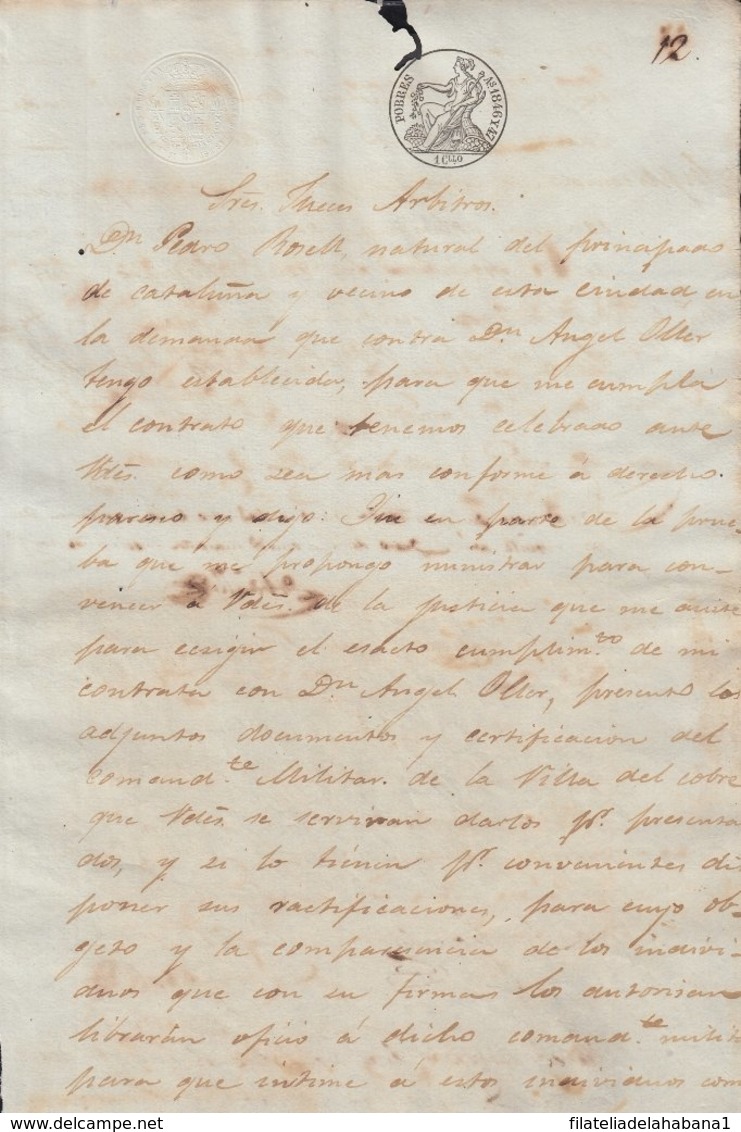 12.
POBRES AS 1846 Y 47
1 C͞tl͞o
Sres. Jueces Arbitros.
Dn. Pedro Rosell, natural del principado
de cataluña y vecino de esta Ciudad en
la demanda que contra Dn. Angel Oller
tengo establecida, para que me cumpla
el contrato que tenemos celebrado ante
Vdes. como sea mas conforme á derecho
paresco y digo: Que en parte de la prue-
ba que me propongo ministrar para con-
vencer á Vdes. de la justicia que me asiste
para ecsigir el esacto cumplim.to de mi
contrata con Dn. Angel Oller, presento los
adjuntos documentos y certificacion del
comand.te Militar. de la Villa del cobre
que Vdes. se serviran darlos pr. presenta
dos, y si lo tienen pr. convenientes dis
poner sus ractificaciones, para cuyo ob-
geto y la comparesencia de los indivi-
duos que con su firmas los autorisan
librarán oficio á dicho comand.te milit
para que intime á estos individuos com
filateliadelahabana1